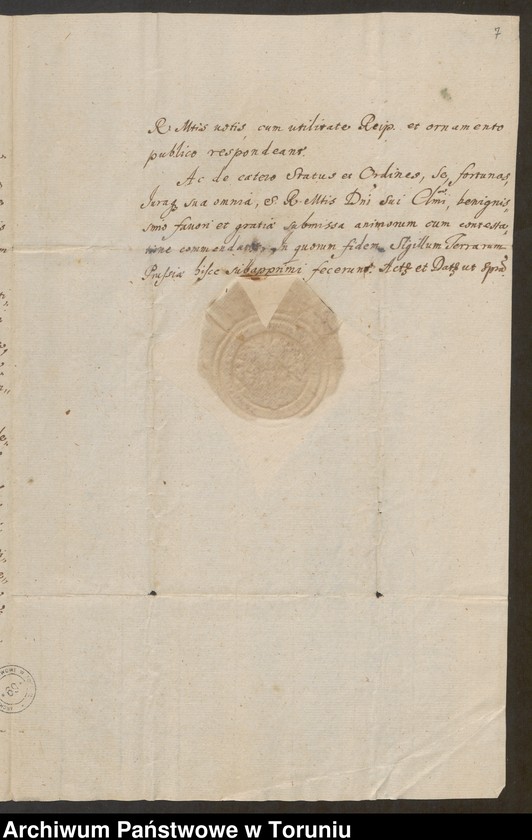 7
R. Mtis votis, cum utilitate Reip. et ornamento
publico respondeant.
Ac de cætero Status et Ordines, se, fortunas,
Juraq sua omnia, S. R. Mtis Dni sui Clmi, benignis,
simo favori et gratiæ submissa animorum cum contesta,
tione commendat. In quorum fidem Sigillum Terrarum
Prussiæ hisce subapprimi fecerunt. Actu et Datu ut spra
69
Archiwum Państwowe w Toruniu